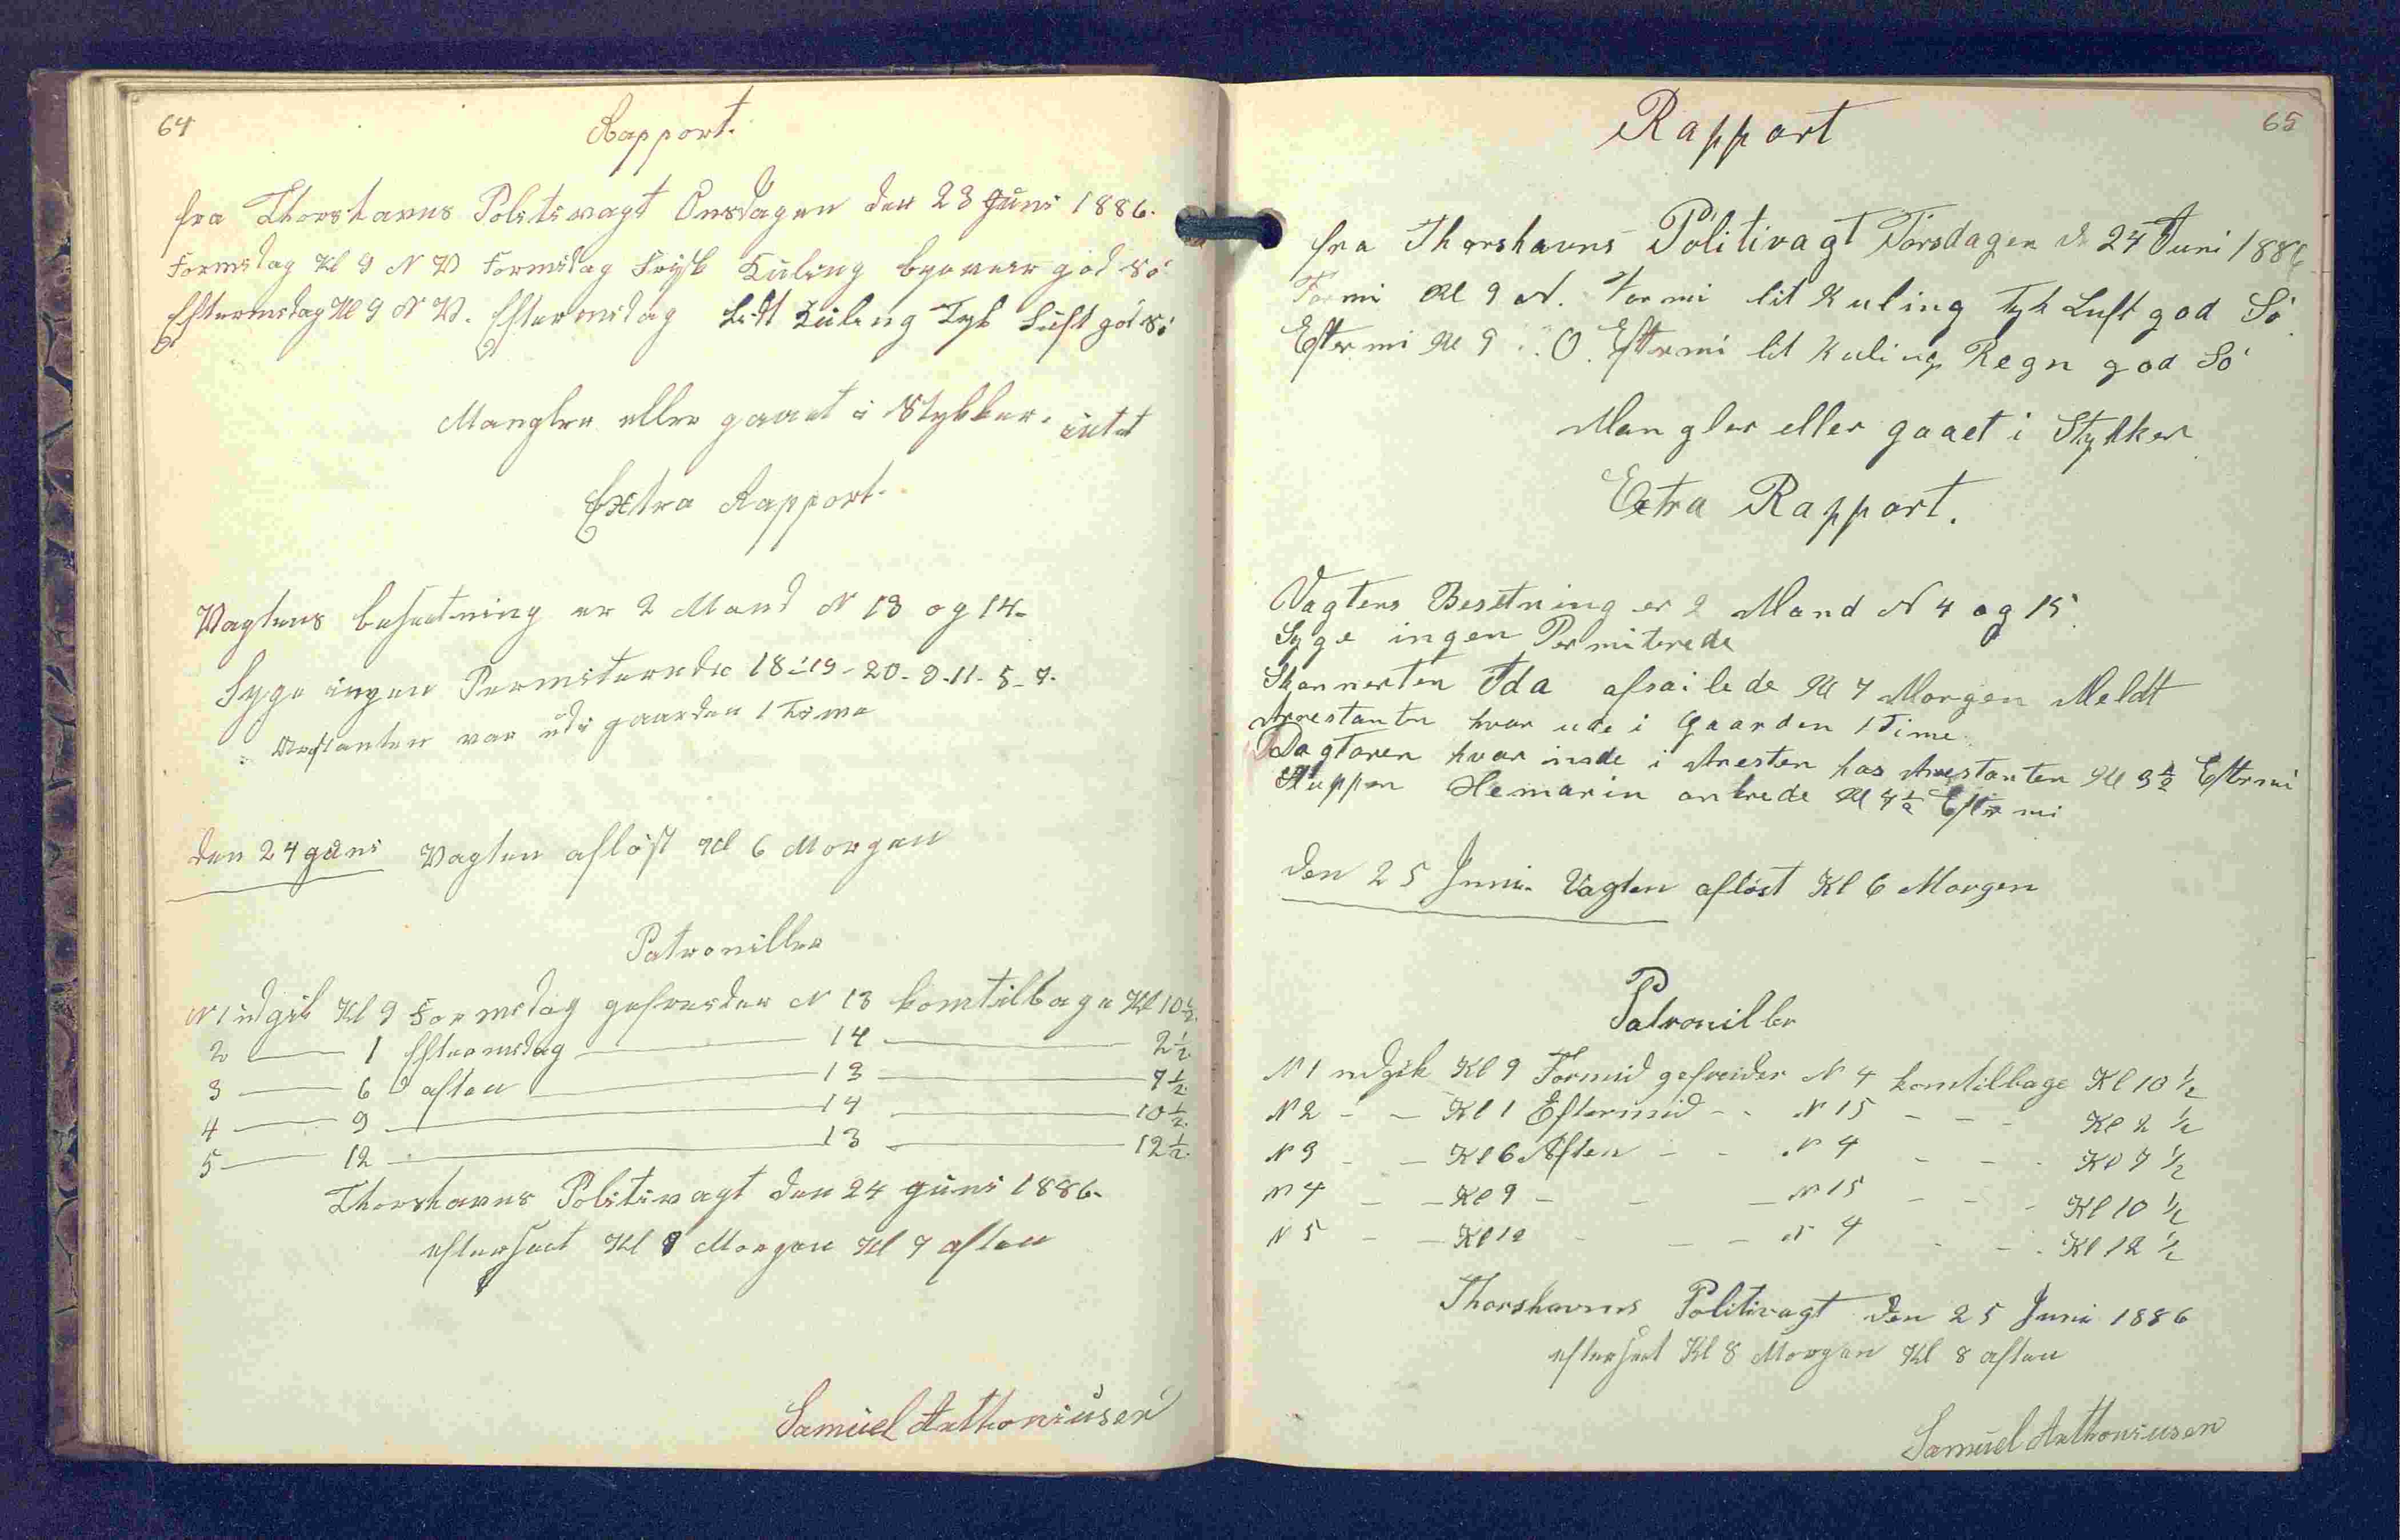 64
Rapport.
fra Thorshavns Politivagt Onsdagen den 23 Juni 1886.
Formidag Kl 9 N V Formidag Frisk Kuling byaveir god Sö
Eftermidag Kl 9 N V. Eftermidag Lidt Kuling Tyk Luft god Sö
Mangler eller gaaet i Stykker. intet
Extra Rapport.
Vagtens besætning er 2 Mand N 13 og 14.
Syge ingen Permiterede 18-19-20-9-11-5-7.
Arestanten var ude gaarden 1 Time
den 24 Juni Vagten aflöst Kl 6 Morgen
Patroniller
N 1 udgik Kl 9 Formidag gefreider N 13 kom tilbage Kl 10 ½.
2 — 1 Eftermidag — 14 — 2 ½.
3 — 6 aften — 13 — 7 ½.
4 — 9 — 14 — 10 ½.
5 — 12 — 13 — 12 ½.
Thorshavns Politivagt den 24 Juni 1886.
efterseet Kl 8 Morgen Kl 7 aften
Samuel Anthoniusen
65
Rapport
fra Thorshavns Politivagt Torsdagen d. 24 Juni 1886
Formi Kl 9 N. Formi lit Kuling Tyk Luft god Sö
Eftermi Kl 9 . . O. Eftermi lit Kuling Regn god Sö
Mangler eller gaaet i Stykker
Extra Rapport.
Vagtens Besetning er 2 Mand N 4 og 15
Syge ingen Permiterede
Skonnerten Ida afsailede Kl 7 Morgen Meldt
Arrestanten hvar ude i Gaarden 1 Time
Dagtoren hvar inde i Aresten hos Arestanten Kl 3 ½ Eftrmi
Sluppen Hemarin ankrede Kl 4 ½ Efter mi
den 25 Juni. Vagten aflöst Kl 6 Morgen
Patroniller
N 1 udgik Kl 9 Formid gefreider N 4 kom tilbage Kl 10 ½
N 2 - - Kl 1 Eftermid - - N 15 - - - Kl 2 ½
N 3 - - Kl 6 Aften - - N 4 - - - Kl 7 ½
N 4 - - Kl 9 - - - N 15 - - - Kl 10 ½
N 5 - - Kl 12 - - - N 4 - - - Kl 12 ½
Thorshavns Politivagt den 25 Juni 1886
efterseet Kl 8 Morgen Kl 8 aften
Samuel Anthoniusen